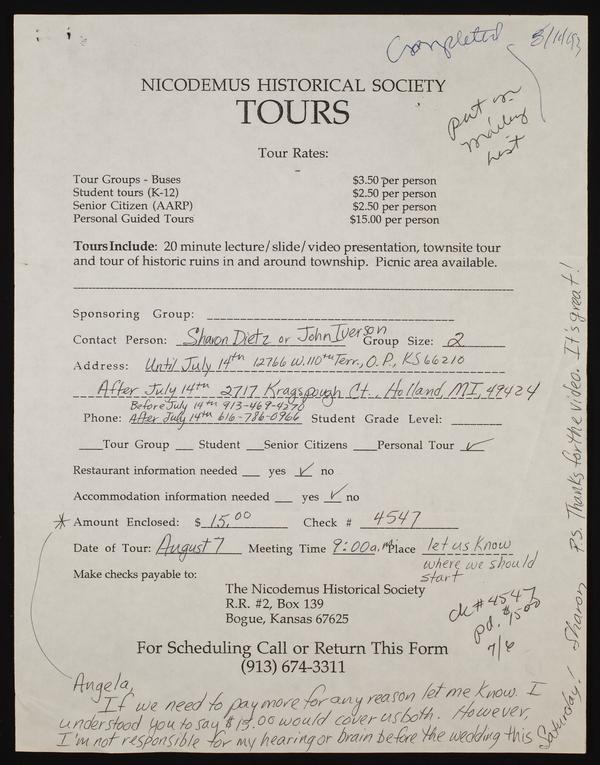 Completed 8/10/93
put on
mailing
list
NICODEMUS HISTORICAL SOCIETY
TOURS
Tour Rates:
Tour Groups - Buses $3.50 per person
Student tours (K-12) $2.50 per person
Senior Citizen (AARP) $2.50 per person
Personal Guided Tours $15.00 per person
Tours Include: 20 minute lecture/slide/video presentation, townsite tour
and tour of historic ruins in and around township. Picnic area available.
Sponsoring Group:
Contact Person: Sharon Dietz or John Iverson Group Size: 2
Address: Until July 14th 12766 W. 110th Terr., O.P., KS 66210
After July 14th 2717 Kragspough Ct., Holland, MI, 49424
Before July 14th 913-469-4270
Phone: After July 14th 616-786-0966 Student Grade Level:
Tour Group Student Senior Citizens Personal Tour ✓
Restaurant information needed yes ✓ no
Accommodation information needed yes ✓ no
* Amount Enclosed: $ 15.00 Check # 4547
Date of Tour: August 7 Meeting Time 9:00a.m. Place let us know
where we should
start
Make checks payable to:
The Nicodemus Historical Society
R.R. #2, Box 139
Bogue, Kansas 67625
ck # 4547
pd. $15.00
7/6
For Scheduling Call or Return This Form
(913) 674-3311
Angela,
If we need to pay more for any reason let me know. I
understood you to say $15.00 would cover us both. However,
I'm not responsible for my hearing or brain before the wedding this
Saturday! Sharon P.S. Thanks for the video. It's great!